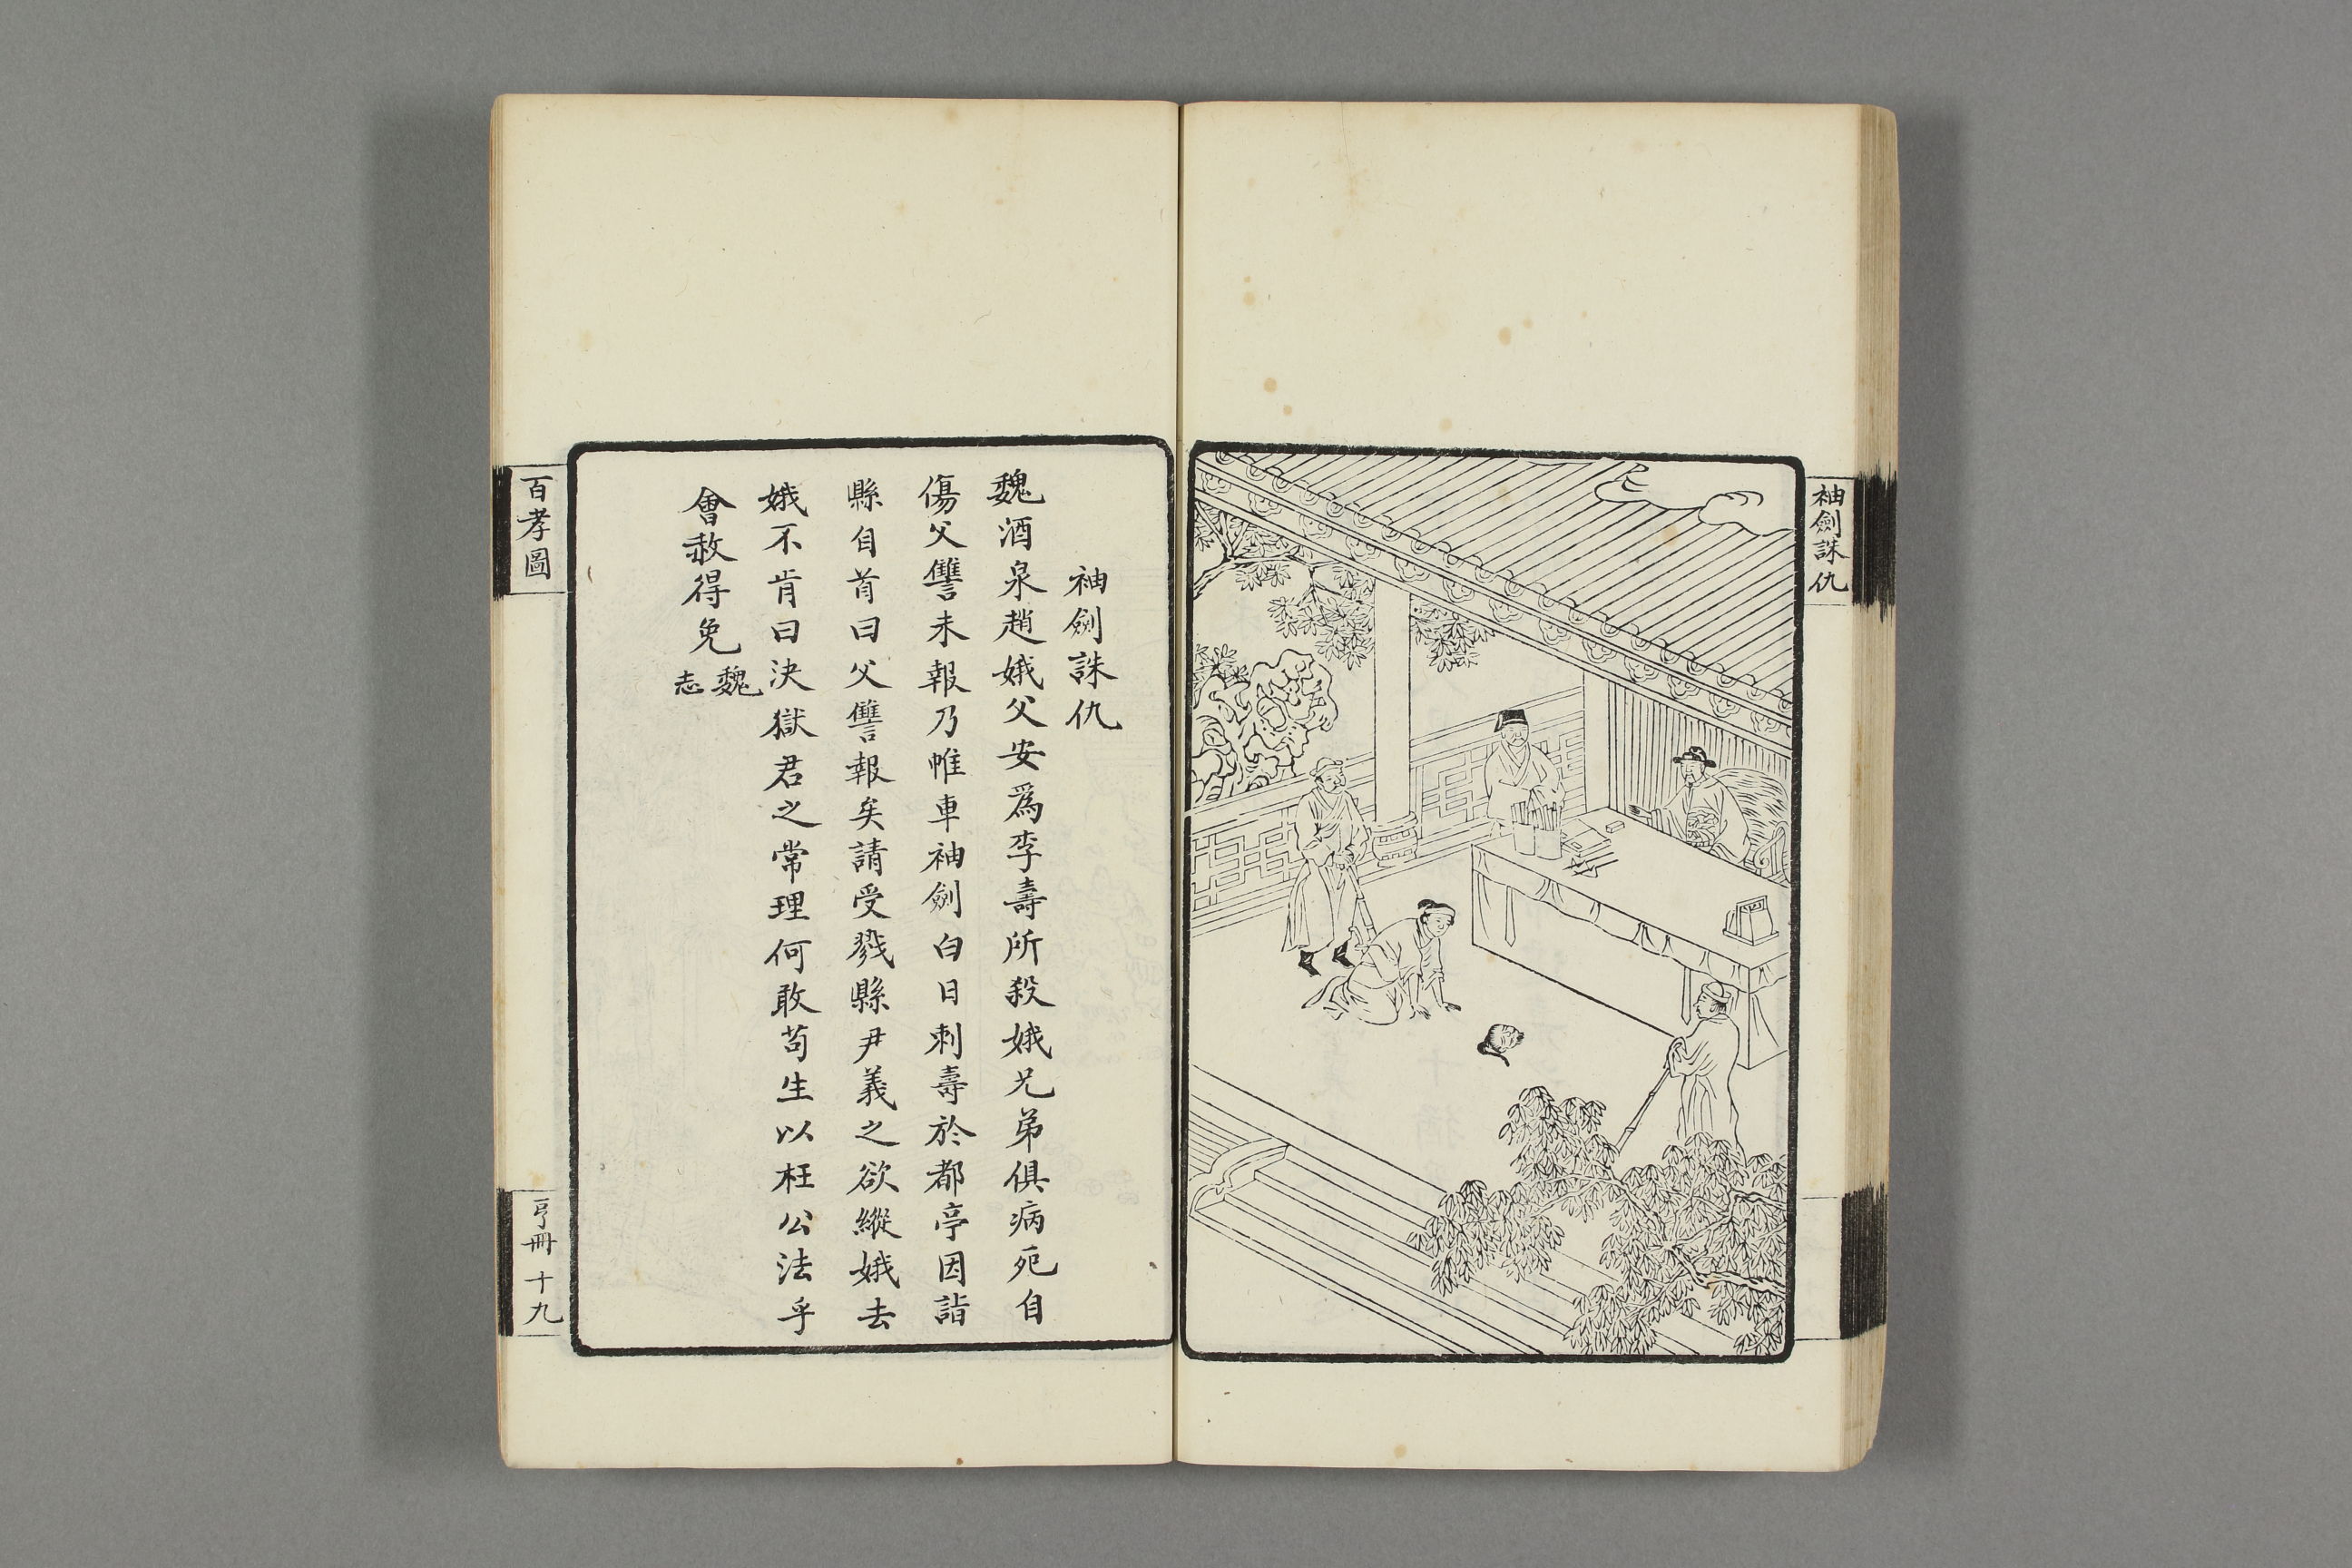 袖劍誅仇
袖劍誅仇
魏酒泉趙娥父安爲李壽所殺娥兄弟俱病死自
傷父讐未報乃帷車袖劍白日刺壽於都亭因詣
縣自首曰父讐報矣請受戮縣尹義之欲縱娥去
娥不肯曰決獄君之常理何敢苟生以枉公法乎
會赦得免魏志
百孝圖
亨冊 十九